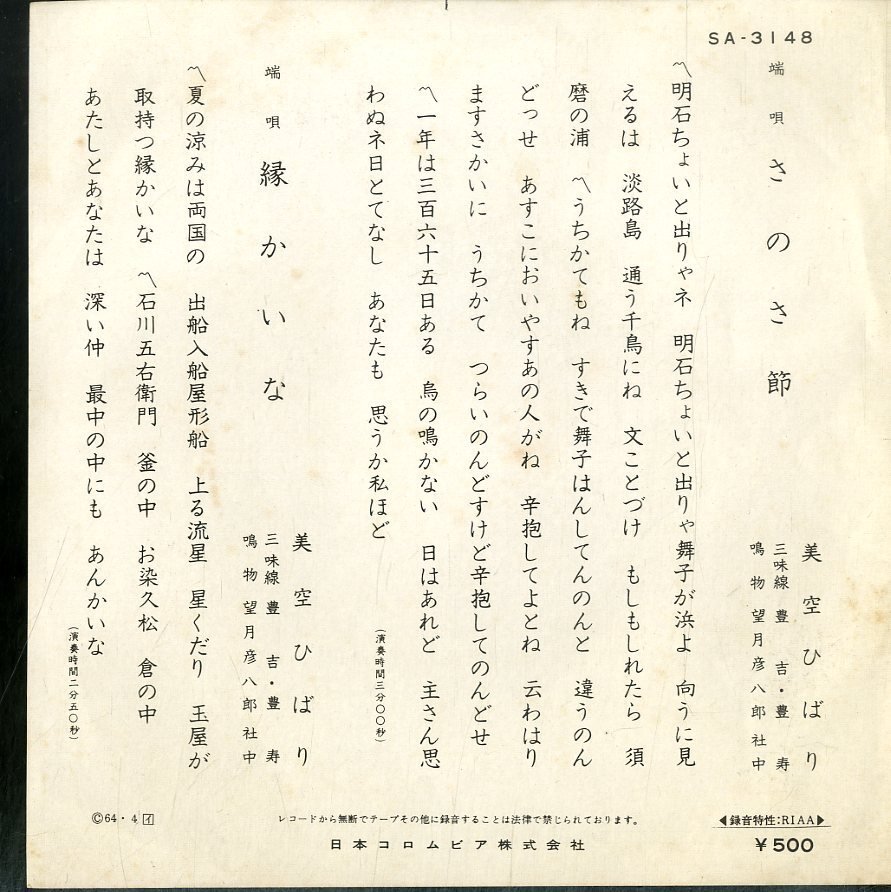 SA-3148
端唄 さのさ節
美空ひばり
三味線 豊吉・豊寿
鳴物 望月彦八郎社中
〽明石ちょいと出りゃネ 明石ちょいと出りゃ舞子が浜よ 向うに見
えるは 淡路島 通う千鳥にね 文ことづけ もしもしれたら 須
磨の浦 〽うちかてもね すきで舞子はんしてんのんと 違うのん
どっせ あすこにおいやすあの人がね 辛抱してよとね 云わはり
ますさかいに うちかて つらいのんどすけど辛抱してのんどせ
〽一年は三百六十五日ある 烏の鳴かない 日はあれど 主さん思
わぬネ日とてなし あなたも 思うか私ほど
(演奏時間三分〇〇秒)
端唄 縁かいな
美空ひばり
三味線 豊吉・豊寿
鳴物 望月彦八郎社中
〽夏の涼みは両国の 出船入船屋形船 上る流星 星くだり 玉屋が
取持つ縁かいな 〽石川五右衛門 釜の中 お染久松 倉の中
あたしとあなたは 深い仲 最中の中にも あんかいな
(演奏時間二分五〇秒)
Ⓒ64・4 イ
レコードから無断でテープその他に録音することは法律で禁じられております。
日本コロムビア株式会社
◀録音特性:RIAA▶
¥500